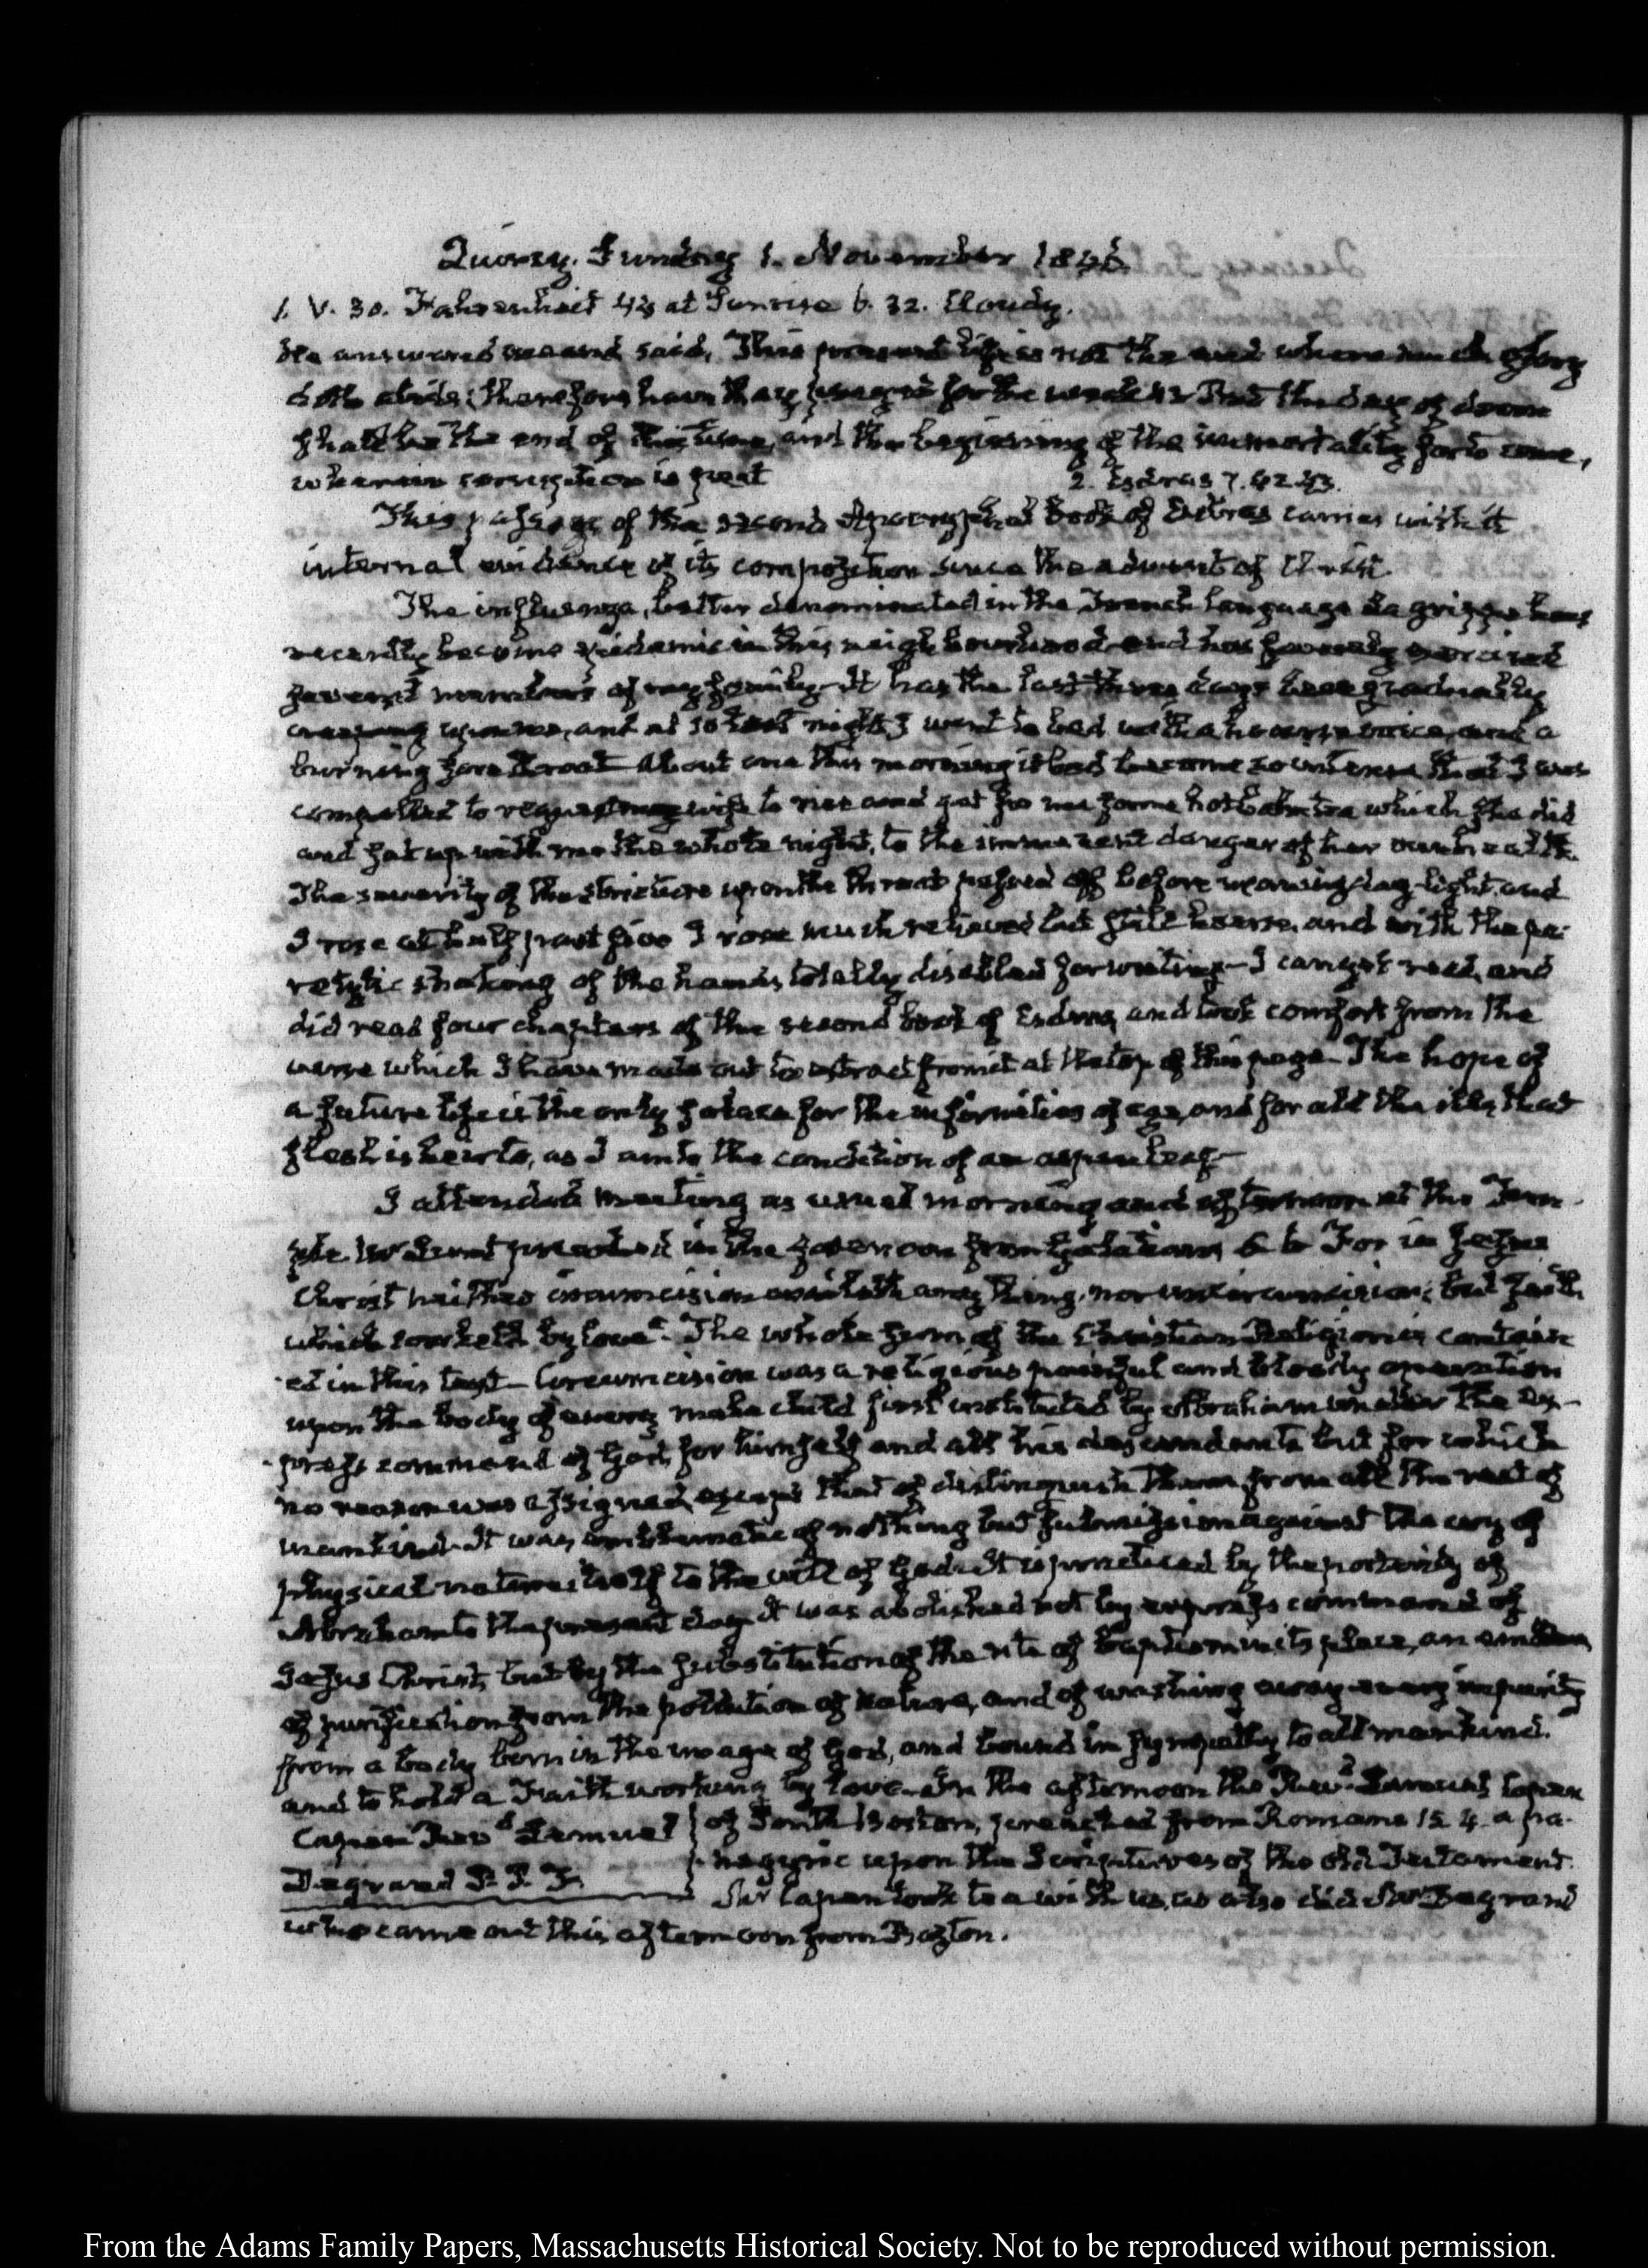 Quincy. Sunday 1. November 1846.
1. V. 30. Fahrenheit 43 at Sunrise 6. 32. Cloudy.
He answered me and said, This present life is not the end where much glory
doth abide; therefore have they prayed for the weak 43 But the day of doom
shall be the end of this time, and the beginning of the immortality for to come,
wherein corruption is past
2. Esdras 7. 42. 43.
This passage of the second Apocryphal book of Esdras carries with it
internal evidence of its composition since the advent of Christ.
The influenza, better denominated in the French language la grippe has
recently become epidemic in this neighbourhood and has severely exercised
several members of my family. It has the last three days been gradually
creeping upon me, and at 10 last night I went to bed with a hoarse voice, and a
burning sore throat. About one this morning it had become so intense that I was
compelled to request my wife to rise and get for me some hot balm tea which she did
and sat up with me the whole night, to the imminent danger of her own health.
The severity of the stricture upon the throat passed off before morning day-light, and
I rose at half past five I rose much relieved but still hoarse, and with the pa-
ralytic shaking of the hands totally disabled for writing—I can yet read, and
did read four chapters of the second book of Esdras, and took comfort from the
verse which I have made out to extract from it at the top of this page. The hope of
a future life is the only solace for the infirmities of age, and for all the ills that
flesh is heir to, as I am to the condition of an aspen leaf—
I attended meeting as usual morning and afternoon at the Tem-
ple. Mr Lunt preached in the forenoon from Galatians 5. 6 For in Jesus
Christ neither circumcision availeth any thing, nor uncircumcision; but faith
which worketh by love". The whole sum of the Christian Religion is contain-
ed in this text—Circumcision was a religious painful and bloody operation
upon the body of every male child first instituted by Abraham under the ex-
press command of God, for himself and all his descendants but for which
no reason was assigned, except that of distinguish them from all the rest of
mankind. It was emblematic of nothing but submission against the cry of
physical nature itself to the will of God. It is practiced by the posterity of
Abraham to the present day. It was abolished not by express command of
Jesus Christ, but by the substitution of the rite of baptism in its place, an emblem
of purification from the pollution of nature, and of washing away every impurity
from a body born in the image of God, and bound in sympathy to all mankind.
and to hold a Faith working by love. In the afternoon the Revd. Lemuel Capen
Capen Revd Lemuel
of South Boston, preached from Romans 15. 4. a pa-
negyric upon the Scriptures of the old Testament.
Degrand P. P. F.
Mr Capen took tea with us, as also did Mr Degrand
who came out this afternoon from Boston.
From the Adams Family Papers, Massachusetts Historical Society. Not to be reproduced without permission.